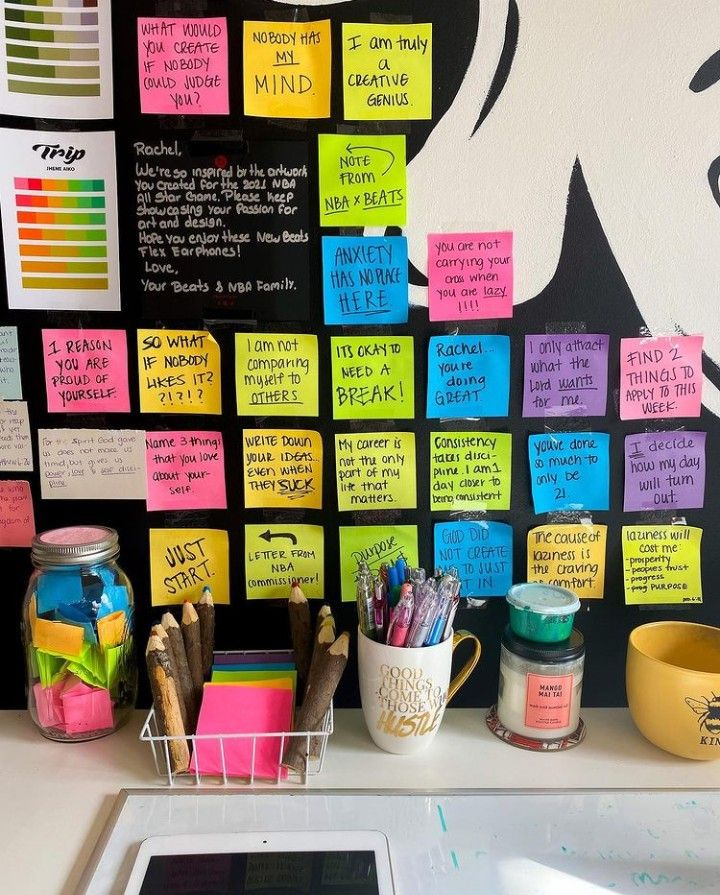 WHAT WOULD
YOU CREATE
IF NOBODY
COULD JUDGE
YOU?
NOBODY HAS
MY
MIND.
I am truly
a
CREATIVE
GENIUS.
Trip
JHENE AIKO
Rachel,
We're so inspired by the artwork
You created for the 2021 NBA
All Star Game. Please keep
showcasing your Passion for
art and design.
Hope you enjoy these New Beats
Flex Earphones!
Love,
Your Beats & NBA Family.
NOTE
FROM
NBA x BEATS
ANXIETY
HAS NO PLACE
HERE
you are not
carrying your
cross when
you are lazy
!!!!
1 REASON
YOU ARE
PROUD OF
YOURSELF.
SO WHAT
IF NOBODY
LIKES IT?
?!?!?
I am not
comparing
myself to
OTHERS
ITS OKAY TO
NEED A
BREAK!
Rachel...
you're
doing
GREAT
I only attract
what the
Lord wants
for me.
FIND 2
THINGS TO
APPLY TO THIS
WEEK.
For the Spirit God gave
us does not make us
timid, but gives us
power, love & self disci-
pline.
Name 3 things
that you love
about your-
self.
WRITE DOWN
YOUR IDEAS..
EVEN WHEN
THEY SUCK
My career is
not the only
part of my
life that
matters.
Consistency
takes disci-
pline. I am 1
day closer to
being consistent
you've done
so much to
only be
21.
I decide
how my day
will turn
out.
JUST
START.
LETTER FROM
NBA
commissioner!
Purpose
GOD DID
NOT CREATE
The cause of
laziness is
the craving
of comfort.
laziness will
cost me:
- prosperity
- peoples trust
- progress
- my PURPOSE
GOOD
THINGS
COME TO
THOSE WHO
HUSTLE
MANGO
MAI TAI
KIN